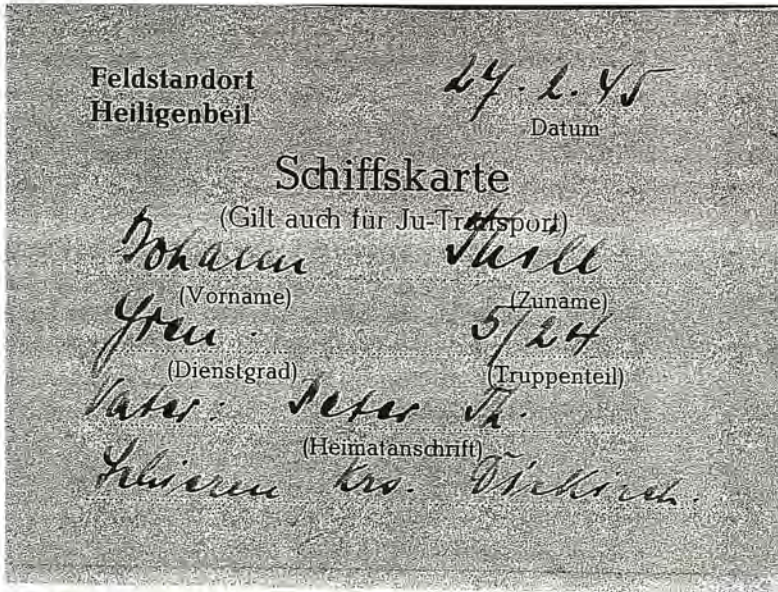 Feldstandort
Heiligenbeil
27. 2. 45
Datum
Schiffskarte
(Gilt auch für Ju-Transport)
Johann Thill
(Vorname) (Zuname)
Gren. 5/24
(Dienstgrad) (Truppenteil)
Vater: Peter Th.
(Heimatanschrift)
Schieren Krs. Diekirch.